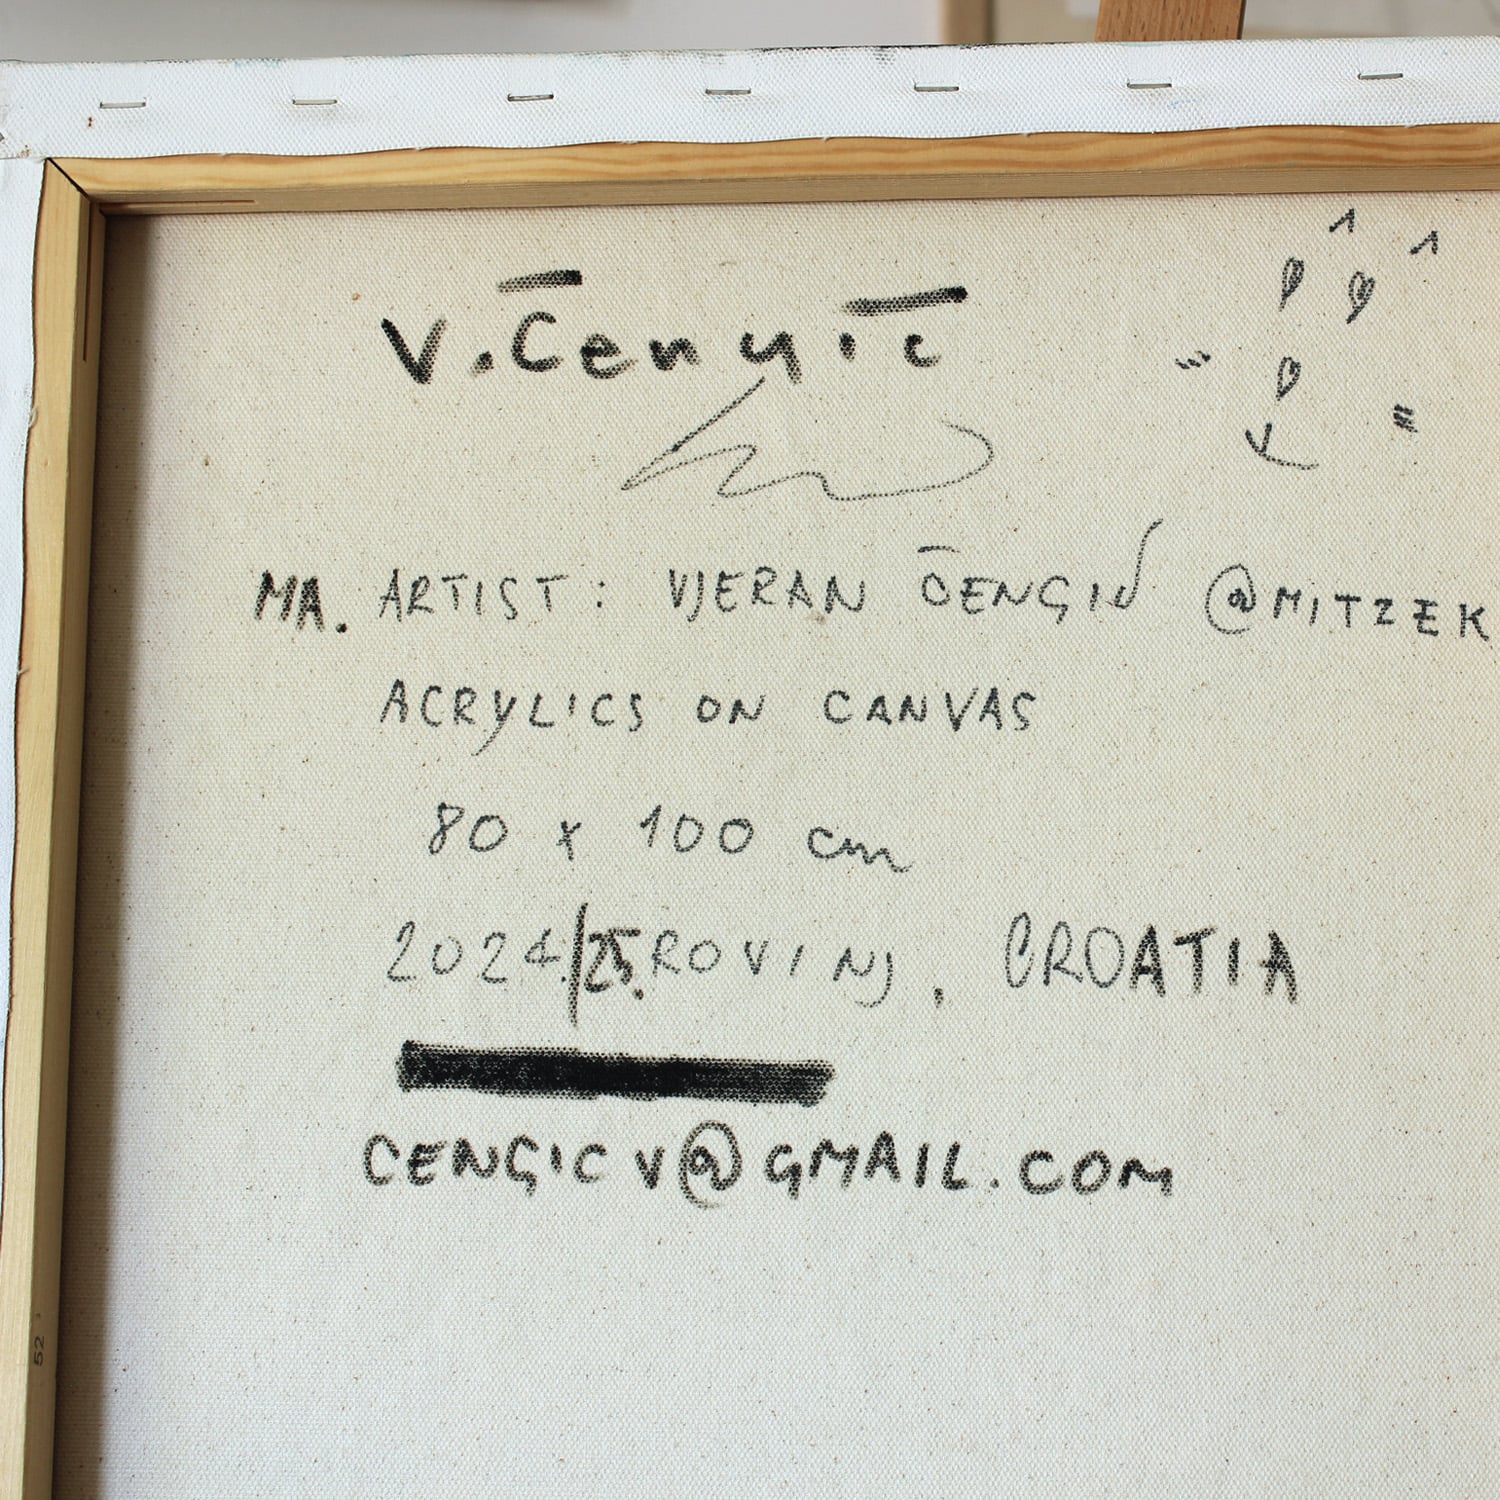 V. Čengić
MA. ARTIST: VJERAN ČENGIĆ @MITZEK
ACRYLICS ON CANVAS
80 x 100 cm
2024./25. ROVINJ, CROATIA
CENGICV@GMAIL.COM
52